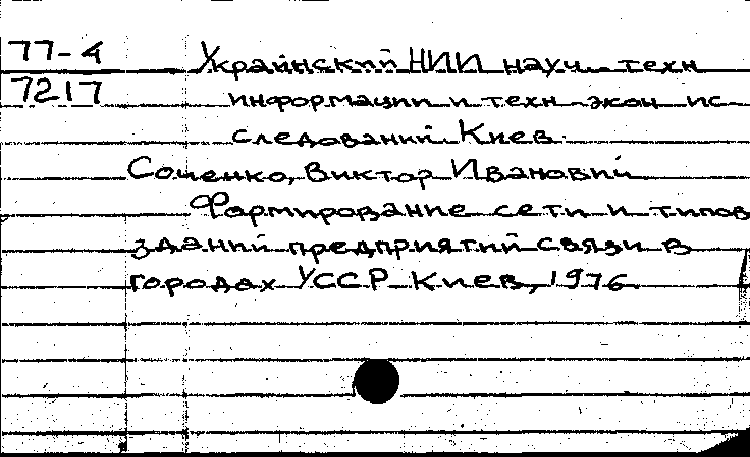 77-4 Украинский НИИ науч.-техн
7217 информации и техн-экон ис-
следований. Киев.
Виктор Иванович
Формирование сети и типов
зданий предприятий связи в
городах УССР Киев, 1976.